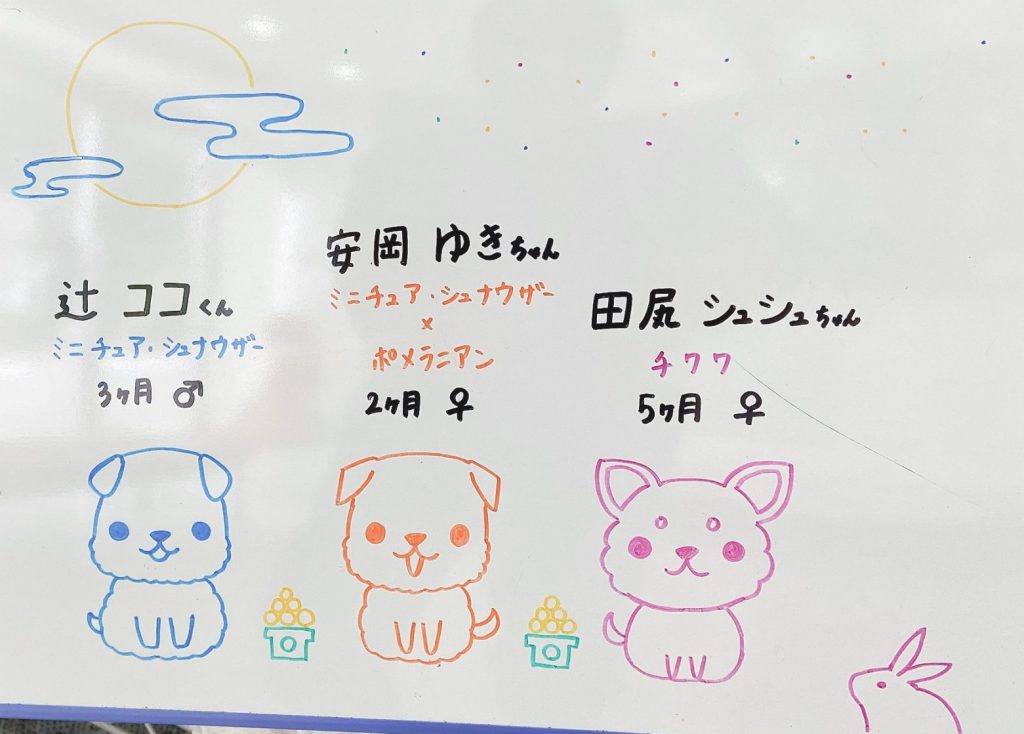 辻 ココくん
ミニチュア・シュナウザー
3ヶ月 ♂
安岡 ゆきちゃん
ミニチュア・シュナウザー
×
ポメラニアン
2ヶ月 ♀
田尻 シュシュちゃん
チワワ
5ヶ月 ♀